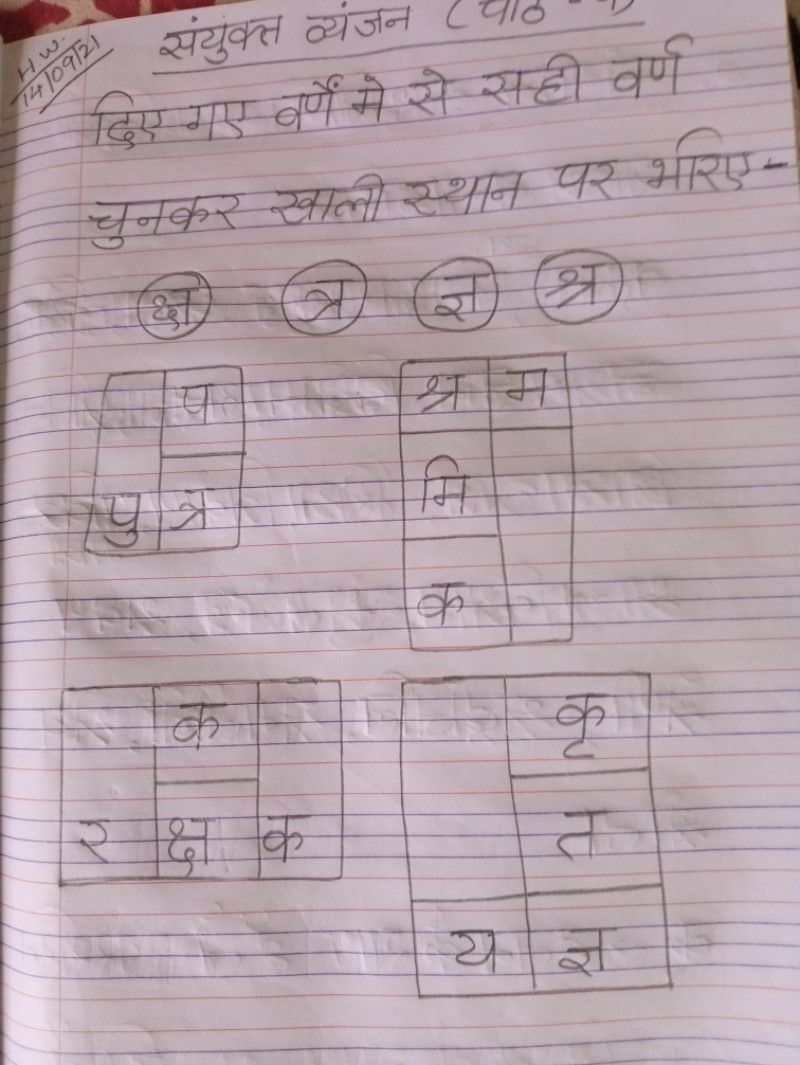 H.W.
14/09/21
संयुक्त व्यंजन (पाठ -
दिए गए वर्णों मे से सही वर्ण
चुनकर खाली स्थान पर भरिए-
क्ष त्र ज्ञ श्र
प
पु त्र
श्र म
मि
क
क
र क्ष क
कृ
त
य ज्ञ